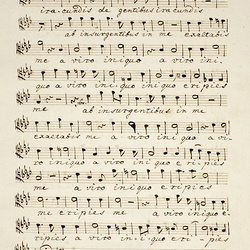 iracundis de gentibus iracundis
ab insurgentibus in me exaltabis
me a viro iniquo a viro ini.
quo a viro iniquo iniquo eripies
me ab insurgentibus in me
exaltabis me a viro iniquo a vi-
ro iniquo a viro iniquo eripies
me a viro iniquo eripies
me eripies me a viro iniquo e-
ripies a viro in-i-quo eri-pies
me.